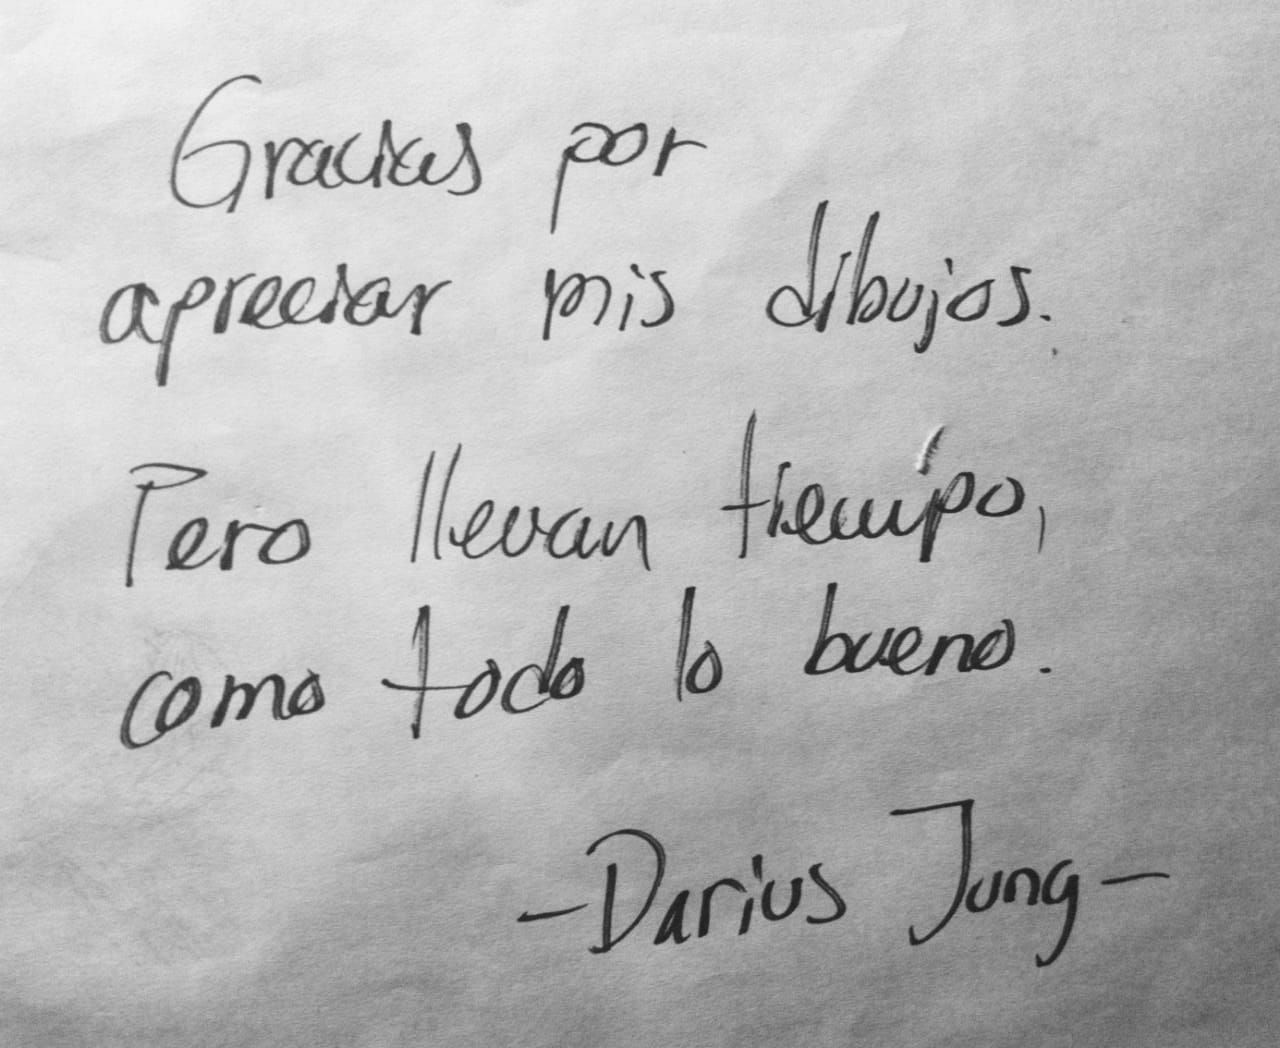 Gracias por
apreciar mis dibujos.
Pero llevan tiempo,
como todo lo bueno.
-Darius Jung-